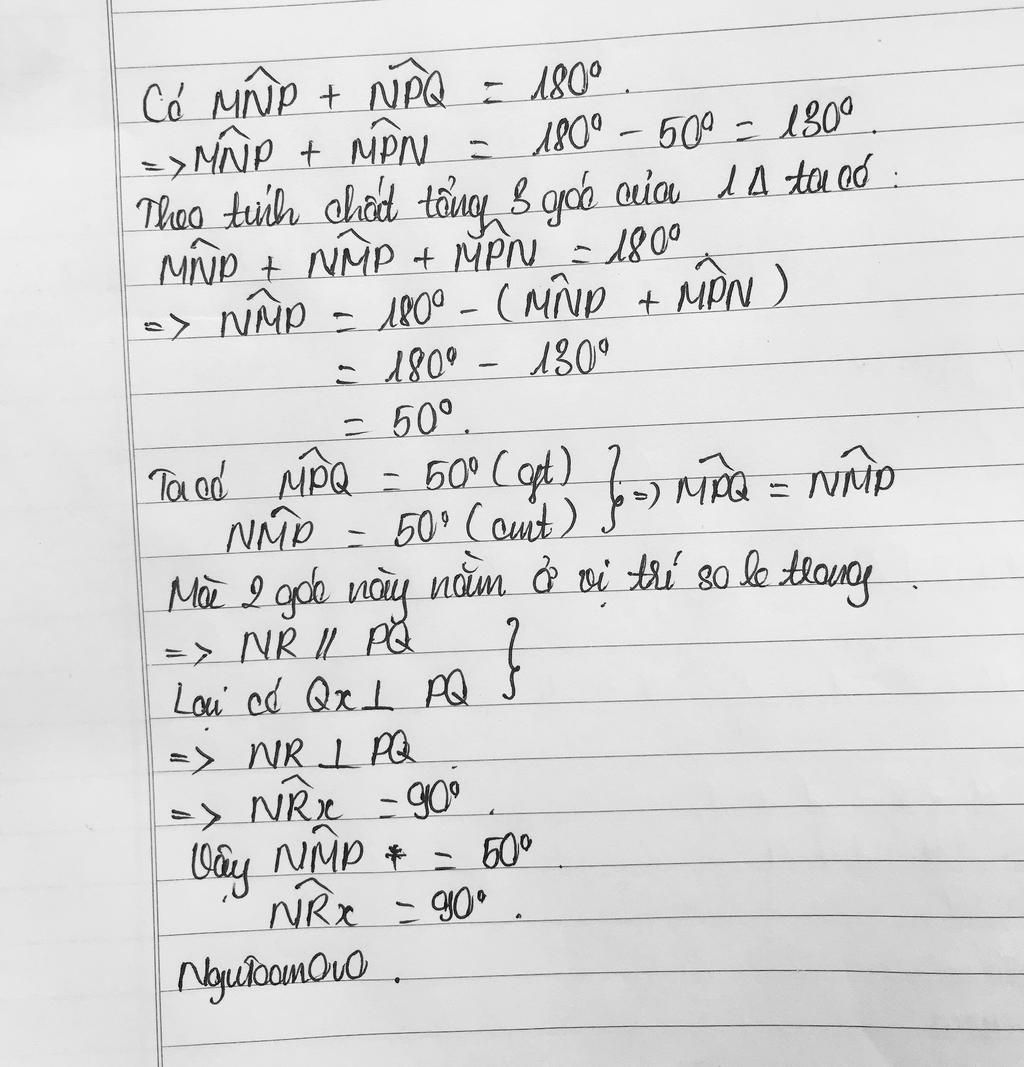 Có MN̂P + NP̂Q = 180°.
=> MN̂P + MP̂N = 180° - 50° = 130°.
Theo tính chất tổng 3 góc của 1 Δ ta có :
MN̂P + NM̂P + MP̂N = 180°.
=> NM̂P = 180° - (MN̂P + MP̂N)
= 180° - 130°
= 50°.
Ta có MP̂Q = 50° (gt) } => MP̂Q = NM̂P
NM̂P = 50° (cmt)
Mà 2 góc này nằm ở vị trí so le trong.
=> NR // PQ }
Lại có Qx ⊥ PQ
=> NR ⊥ PQ.
=> NR̂x = 90°.
Vậy NM̂P * = 50°.
NR̂x = 90°.